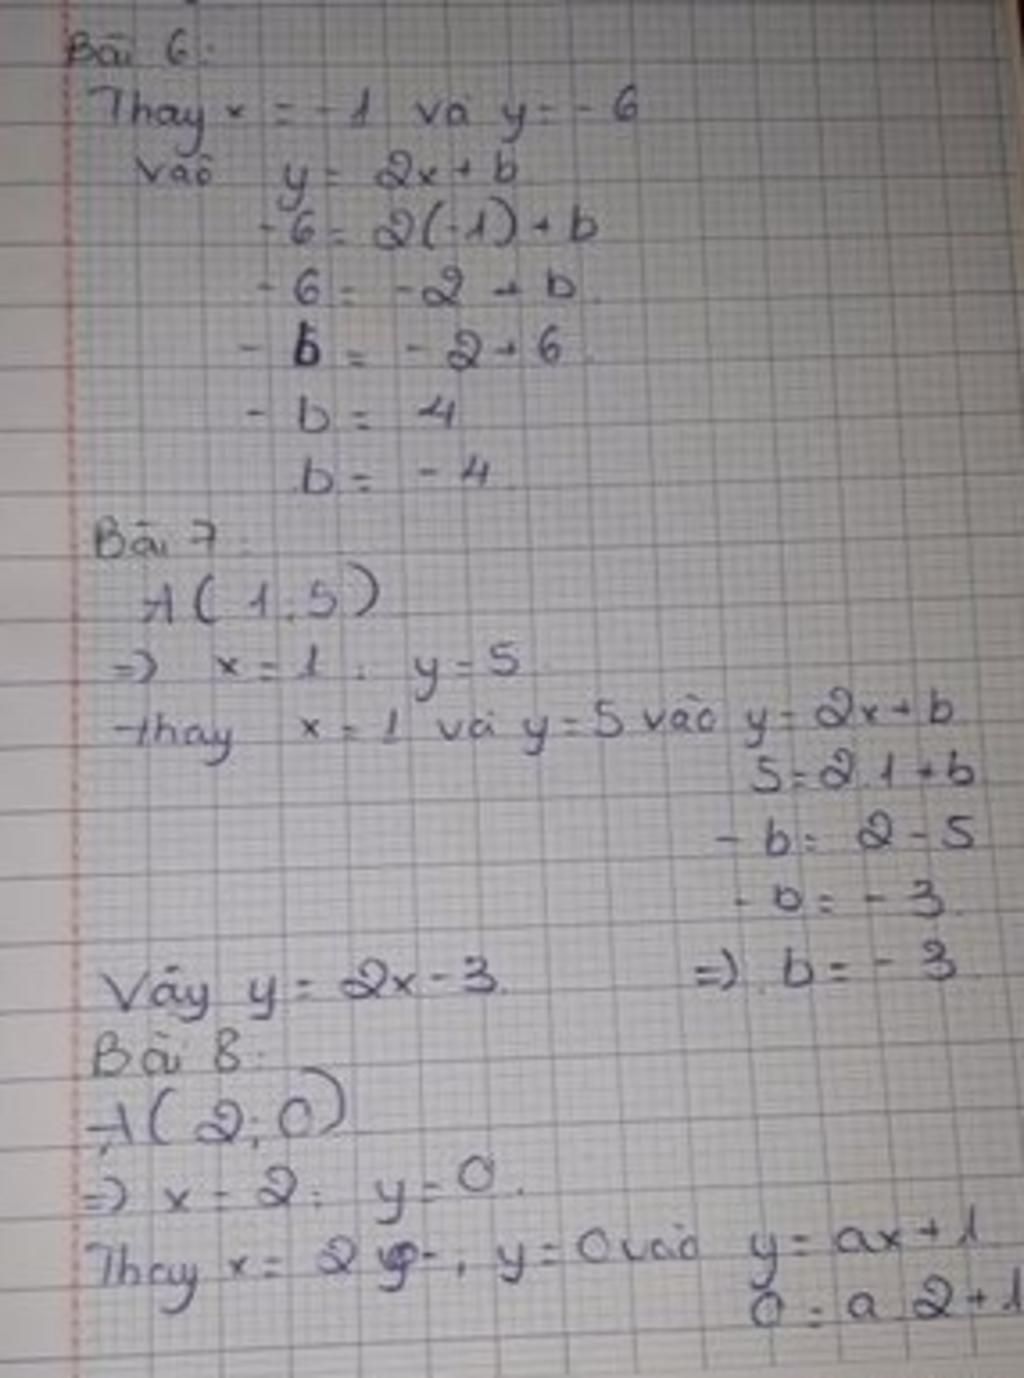 Bài 6:
Thay x = -1 và y = -6
vào y = 2x + b
-6 = 2(-1) + b
-6 = -2 + b
- b = -2 + 6
- b = 4
b = -4
Bài 7:
A(1;5)
=> x = 1; y = 5
Thay x = 1 và y = 5 vào y = 2x + b
5 = 2.1 + b
- b = 2 - 5
- b = - 3
=> b = - 3
Vậy y = 2x - 3.
Bài 8:
A(2;0)
=> x = 2; y = 0.
Thay x = 2, y = 0 vào y = ax + 1
0 = a.2 + 1